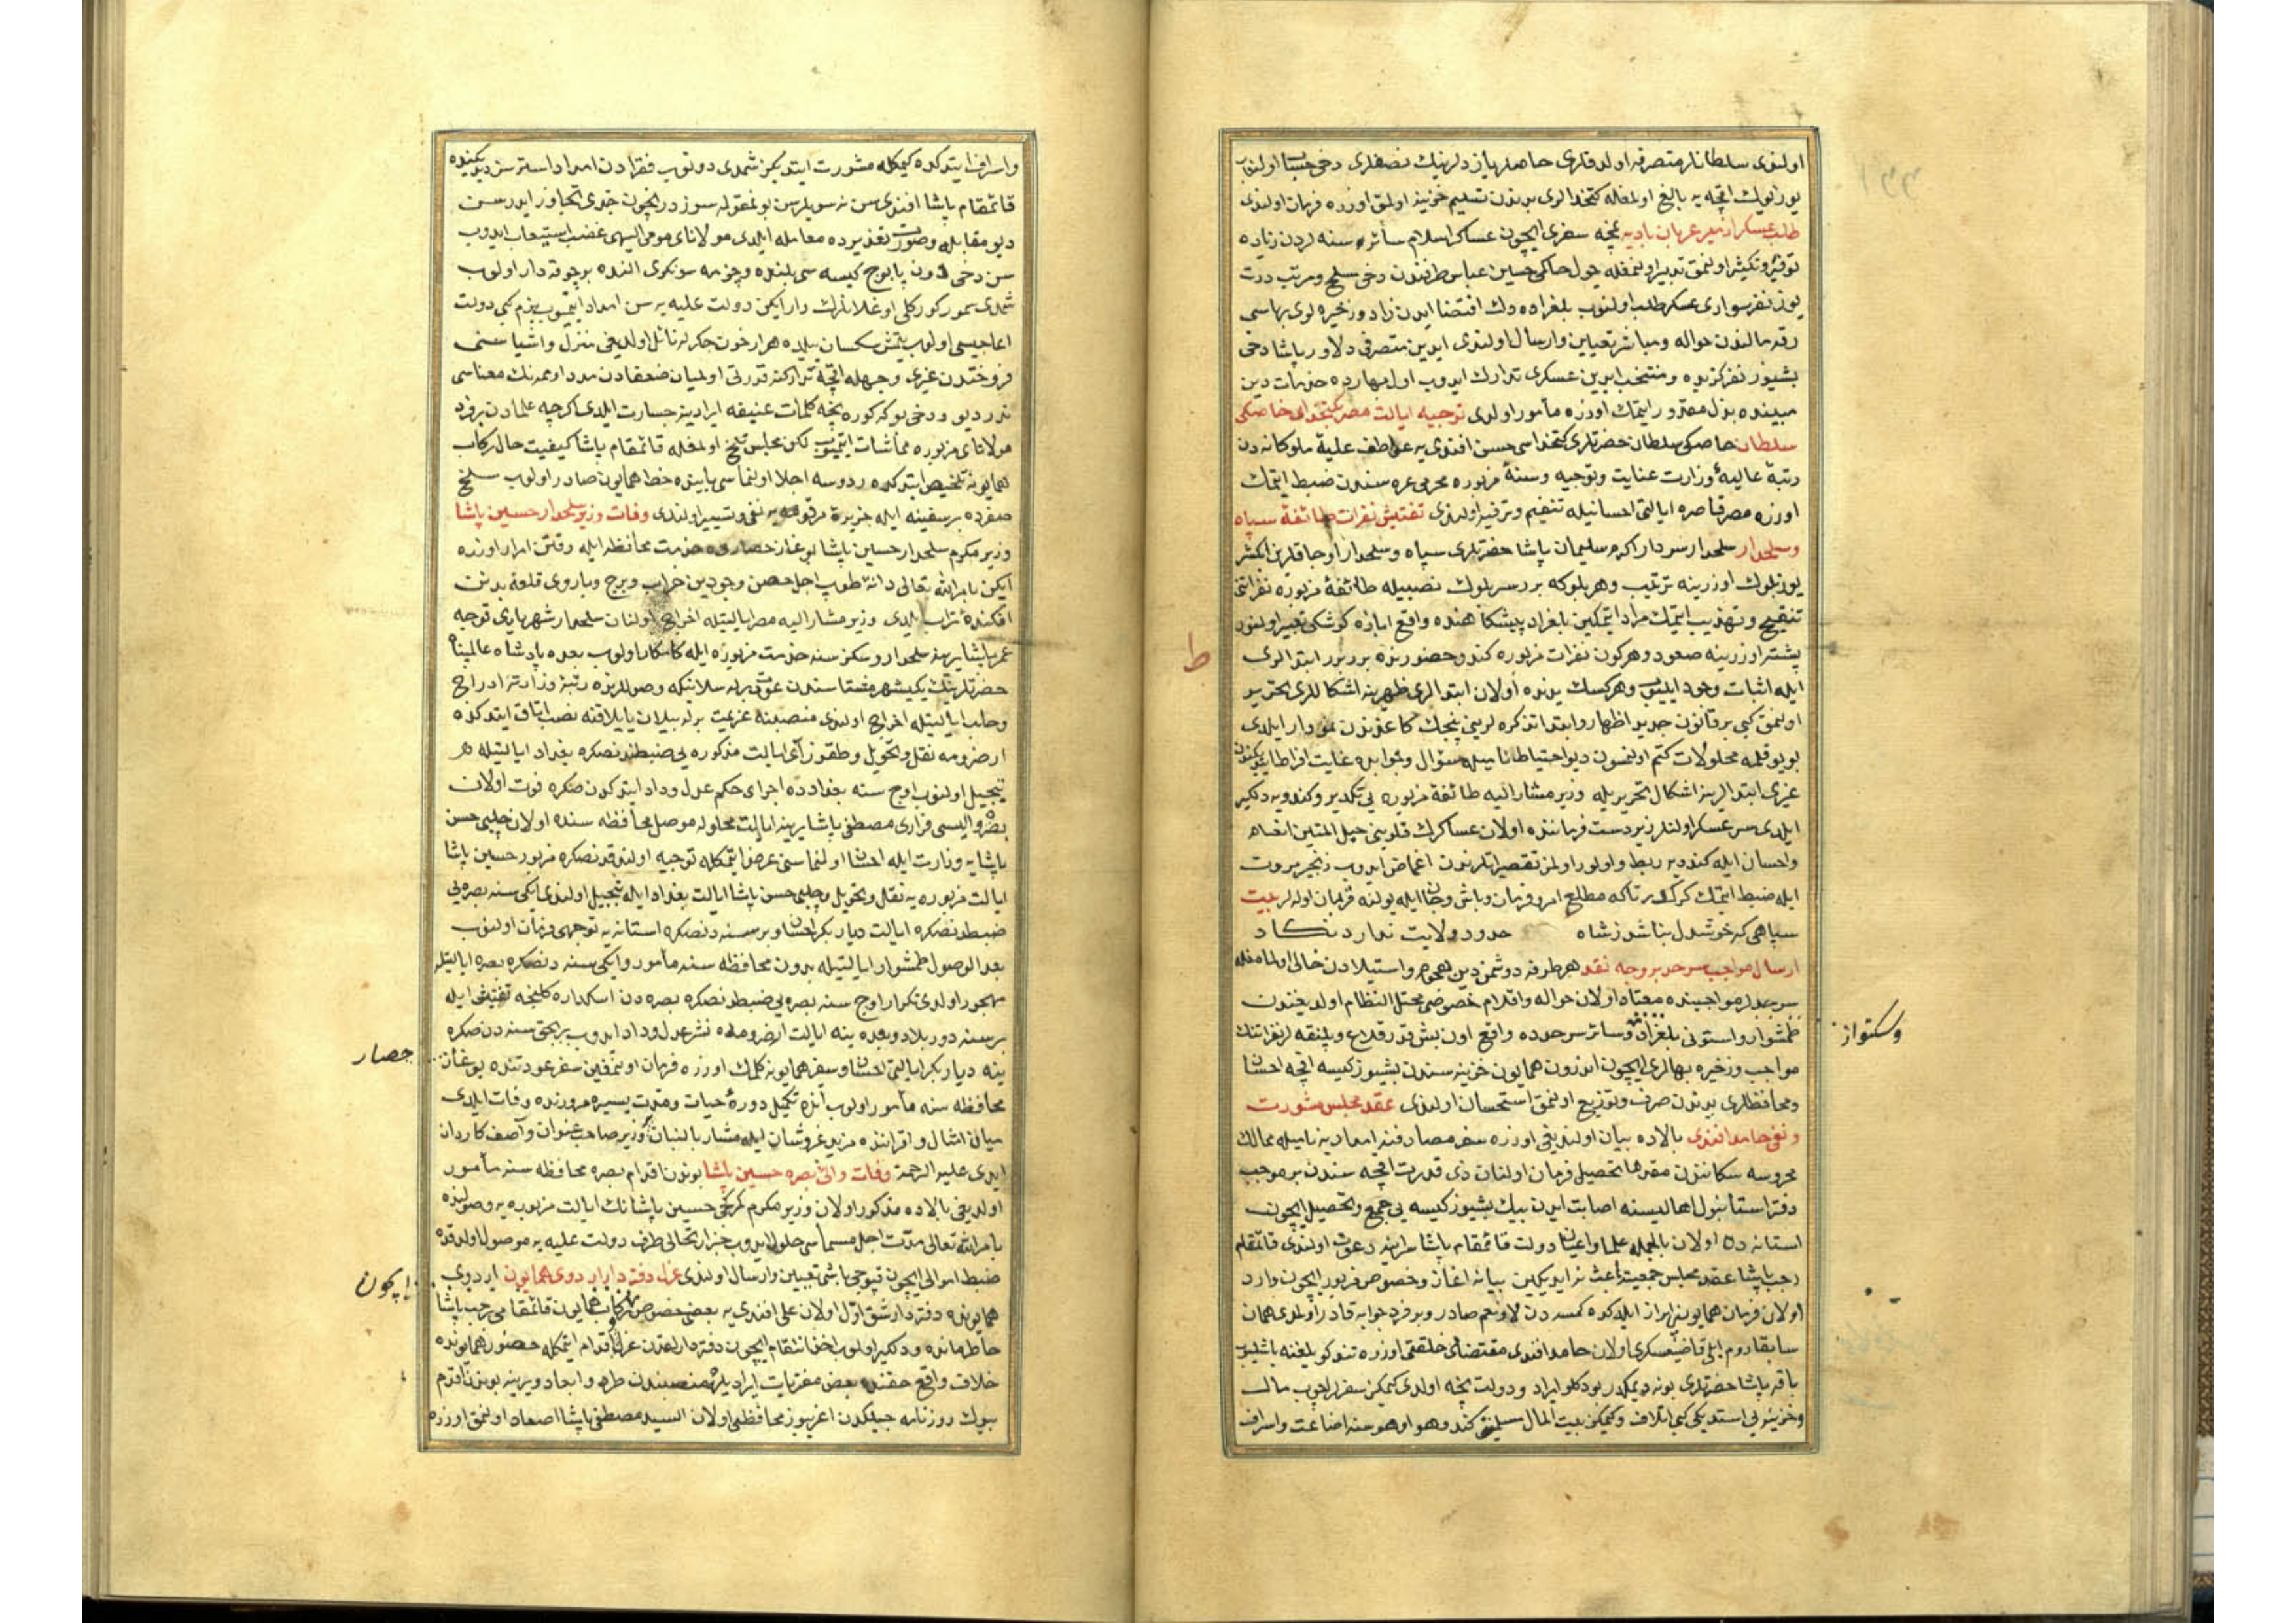 اولنوب سلطانلر متصرفه اولدقلری خاصلر یازدلرینك نصفلری دخی حسبا اولنوب
یوز یوك اقچه یه بالغ اولمغله كتخدالری یدندن تسلیم خزینه اولمق اوزره فرمان اولندی
طلب عسكر از میر عربان بادیه نمچه سفری ایچون عساكر اسلام سائر سنه لردن زیاده
توفیر و تكثیر اولنمق تدبیر اولنمغله چول حاكمی حسین عباس طرفندن دخی مسلح و مرتب درت
یوز نفر سواری عسكر طلب اولنوب بلغراده دك اقتضا ایدن زاد و زخیره لری بهاسی
رقه مالندن حواله و مباشر تعیین و ارسال اولندی ایدین متصرفی دلاور پاشا دخی
بشیوز نفر كزیده و منتخب ایدین عسكری تدارك ایدوب اول بهارده خدمات دین
مبینده بذل مقدور ایتمك اوزره مأمور اولدی توجیه ایالت مصر بكتخدای خاصكی
سلطان خاصكی سلطان حضرتلری كتخداسی حسن افندی یه عواطف علیه ملوكانه دن
رتبۀ عالیۀ وزارت عنایت و توجیه و سنۀ مزبوره محرمی غره سندن ضبط ایتمك
اوزره مصر قاهره ایالتی احسانیله تفخیم و ترفیه اولندی تفتیش نفرات طائفۀ سپاه
و سلحدار سلحدار سردار اكرم سلیمان پاشا حضرتلری سپاه و سلحدار اوجاقلرین اكثر
یوز بلوك اوزرینه ترتیب و هر بلوكه بر سر بلوك نصبیله طائفۀ مزبوره نفراتنی
تنقیح و تهذیب ایتمك مراد ایتمكین بلغراد پیشكاهنده واقع ابازه كوشكی تعبیر اولنور
پشته اوزرینه صعود و هر كون نفرات مزبوره كندو حضورنده بر بر ابتدالری
ایله اثبات وجود ایلیوب و هر كسك یدنده اولان ابتدالری ظهرینه اشكاللری تحریر
اولنمق كبی بر قانون جدید اظهار و ابتدا تذكره لرینی پنجك كاغذندن نمودار ایلدی
بو یوقلمه محلولات كتم اولنمسون دیو احتیاطا نامیله سؤال و جوابده غایت افراط ایدوب
غیری ابتدالرینه اشكال تحریریله وزیر مشارالیه طائفۀ مزبوره یی تكدیر و كندویه دلكیر
ایلدی سر عسكر اولنلر زیر دست فرماننده اولان عساكرك قلوبنی حبل المتین انعام
و احسان ایله كندویه ربط و اولور اولمز تقصیراتلرندن اغماض ایدوب زنجیر مروت
ایله ضبط ایتمك كركدر تا كه مطلع امر و فرمان و باش و جان ایله یولنه قربان اوله لر بیت
سپاهی كه خوشدل نباشد ز شاه حدود ولایت ندارد نكاه
ارسال مواجب سرحد بروجه نقد هر طرفه دوشمن دین هجوم و استیلادن خالی اولمامغله
سرحدلر مواجبنده معتاد اولان حواله و اقلام خصوصی مختل النظام اولدیغندن
طمشوار و استونی بلغراد و سائر سرحدده واقع اون بش قدر قلاع و پلنقه لر نفراتنك
وسكتوار
مواجب و زخیره بهالری ایچون اندرون همایون خزینه سندن بشیوز كیسه اقچه احسان
و محافظلری یدندن صرف و توزیع اولنمق استحسان اولندی عقد مجلس مشورت
و نفی حامد افندی بالاده بیان اولندیغی اوزره سفر مصارفنه امدادیه نامیله ممالك
محروسه سكانندن مقدما تحصیلی فرمان اولنان ذی قدرت اقچه سندن بر موجب
دفتر استانبول اهالیسنه اصابت ایدن بیك بشیوز كیسه یی جمع و تحصیل ایچون
استانه ده اولان بالجمله علما و اعیان دولت قائمقام پاشا سراینه دعوت اولندی قائمقام
رجب پاشا عقد مجلس جمعیته باعث نه ایدیكین بیانه اغاز و خصوص مزبور ایچون وارد
اولان فرمان همایونی ابراز ایلدكده كمسه دن لا و نعم صادر و بر فرد جوابه قادر اولمدی همان
سابقا روم ایلی قاضیعسكری اولان حامد افندی مقتضای خلقتی اوزره تند كویلغنه باشلیوب
باقه پاشا حضرتلری بونه دیمكدر بو دكلو ایراد و دولت نیجه اولدی كیمكن سفرلر اچوب مال
و خزینه یی استدیكی كبی اتلاف و كیمكن بیت المال مسلمینی كندو هوا و هوسنه اضاعت و اسراف
ط
و اسراف ایتدكده كیمكله مشورت ایتدیكز شمدی دونوب فقرادن امداد استرسز دیدیكنده
قائمقام پاشا افندی سن نه سویلرسن بو مقوله سوزدر نیچون حدی تجاوز ایدرسن
دیو مقابله و صورت تعذیرده معامله ایلدی مولانای مومی الیهی غضب استیعاب ایدوب
سن دخی دون پابوج كیسه سی بلنده و چزمه سونكری النده بر چوقه دار اولوب
شمدی سمور كوركلی اوغلانلرك وار ایكن دولت علیه یه سن امداد ایتمیوب بزم كبی دولت
اماجیسی اولوب یتمش سكسان ییلده هزار خون جكرله نائل اولدیغی منزل و اشیاسنی
فروختدن غیری وجهله اقچه تداركنه قدرتی اولمیان ضعفادن مدد اوممه نك معناسی
ندر دیو و دخی بو كه كوره نیجه كلمات عنیفه ایرادینه جسارت ایلدی اكرچه علمادن بر فرد
مولانای مزبوره مماشات ایتمیوب لكن مجلس تلخ اولمغله قائمقام پاشا كیفیت حال ركاب
همایونه تلخیص ایتدكده ردوسه اجلا اولنماسی بابنده خط همایون صادر اولوب سلخ
صفرده بر سفینه ایله جزیرۀ مرقومه یه نفی و تسییر اولندی وفات وزیر سلحدار حسین پاشا
وزیر مكرم سلحدار حسین پاشا بوغاز حصارده خدمت محافظه ایله وقتن امرار اوزره
ایكن بامر الله تعالی دانۀ طوب اجل حصن وجودین خراب و برج و باروی قلعۀ بدنن
افكندۀ تراب ایلدی وزیر مشارالیه مصر ایالتیله اخراج اولنان سلحدار شهریاری توجه
عمر پاشا یرینه سلحدار و سكز سنه خدمت مزبوره ایله كامكار اولوب بعده پادشاه عالمپناه
حضرتلرینك یكیشهر مشتاسندن عودت برله سلانیكه وصوللرنده رتبۀ وزارته ادراج
و حلب ایالتیله اخراج اولندی منصبنه عزیمت برله بیلان یایلاقنه نصب اوتاق ایتدكده
ارضرومه نقل و تحویل و طقوز آی ایالت مذكوره یی ضبطندنصكره بغداد ایالتیله
تبجیل اولنوب اوج سنه بغدادده اجرای حكم عدل و داد ایتدكدن صكره فوت اولان
بصره والیسی فراری مصطفی پاشا یرینه ایالت محلوله موصل محافظه سنده اولان چلبی حسن
پاشایه وزارت ایله احسان اولنماسنی عرض ایتمكله توجیه اولندقدنصكره مزبور حسین پاشا
ایالت مزبوره یه نقل و تحویل و چلبی حسن پاشا ایالت بغداد ایله تبجیل اولندی ایكی سنه بصره یی
ضبطدنصكره ایالت دیاربكر احسان و بر سنه دنصكره استانه یه توجهی فرمان اولنوب
بعد الوصول طمشوار ایالتیله بدون محافظه سنه مأمور و ایكی سنه دنصكره بصره ایالتیله
مهجور اولدی تكرار اوج سنه بصره یی ضبطدنصكره بصره دن اسكداره كلینجه تفتیش ایله
بر سنه دور بلاد و بعده ینه ایالت ارضرومده نشر عدل و داد ایدوب بر بچق سنه دن صكره
ینه دیاربكر ایالتی احسان و سفر همایونه كلمك اوزره فرمان اولنمغین سفر عودتنده بوغاز
حصار
محافظه سنه مأمور اولوب آنده تكمیل دورۀ حیات و مدت یسیره مرورنده وفات ایلدی
میان امثال و اقراننده مزید عز و شان ایله مشار بالبنان وزیر صاحب عنوان و آصف كاردان
ایدی علیه الرحمة وفات والئ بصره حسین پاشا بوندن اقدم بصره محافظه سنه مأمور
اولدیغی بالاده مذكور اولان وزیر مكرم حسین پاشانك ایالت مزبوره یه وصولنده
بامر الله تعالی مدت اجل مسماسی حلول ایدوب خبر ارتحالی طرف دولت علیه یه موصول اولدقده
ضبط اموالی ایچون قپوجی باشی تعیین و ارسال اولندی عزل دفتردار اردوی همایون اردوی
ایچون
همایونده دفتردار شق اول اولان علی افندی یه بعض خصوص ایچون ركاب همایون قائمقامی رجب پاشا
خاطرمانده و دلكیر اولوب اخذ انتقام ایچون دفتردارلقدن عزلنه اقدام ایتمكله حضور همایونده
خلاف واقع حقنده بعض مفتریات ایراد یله منصبندن طرد و ابعاد و یرینه بوندن اقدم
بیوك روزنامه جیلكدن اغریبوز محافظی اولان السید مصطفی پاشا اصعاد اولنمق اوزره